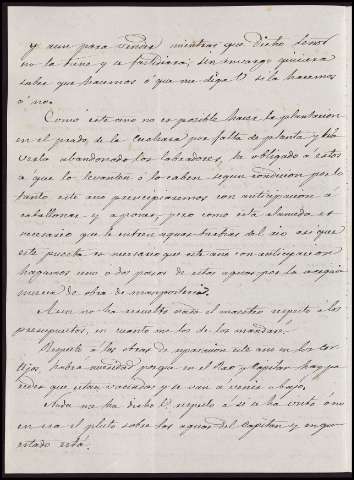 y aun para Señar mientras que dicho Señor
no la tiene y se fastidiara; sin embargo quisiera
saber que hacemos ó que me diga V. si la hacemos
ó no.
Como este año no es posible hacer la plantacion
en el prado, de la Cuchara por falta de planta y
abandonado los labradores, ha obligado á estos
a que lo levanten ó lo caben segun condicion por lo
tanto este año principiaremos con anticipacion á
caballonar y aponar, pero como esta alameda es
necesario que le entren aguas turbias del rio asi que
este puesta es necesario que este año con anticipacion
hagamos uno ó dos pasos de estas aguas por la acequia
nueva de obra de mamposteria.
Aun no ha resuelto nada el maestro respeto á los
presupuestos, en cuanto me los de los mandaré.
Respeto á las obras de reparacion este año en los Cor-
tijos, habra necesidad porque en el Rao y Capitan hay pa-
redes que estan vaciadas y se van a venir abajo.
Nada me ha dicho V. respeto á si se ha visto ó no
en esa el pleito sobre las aguas del Capitan y en que
estado está.